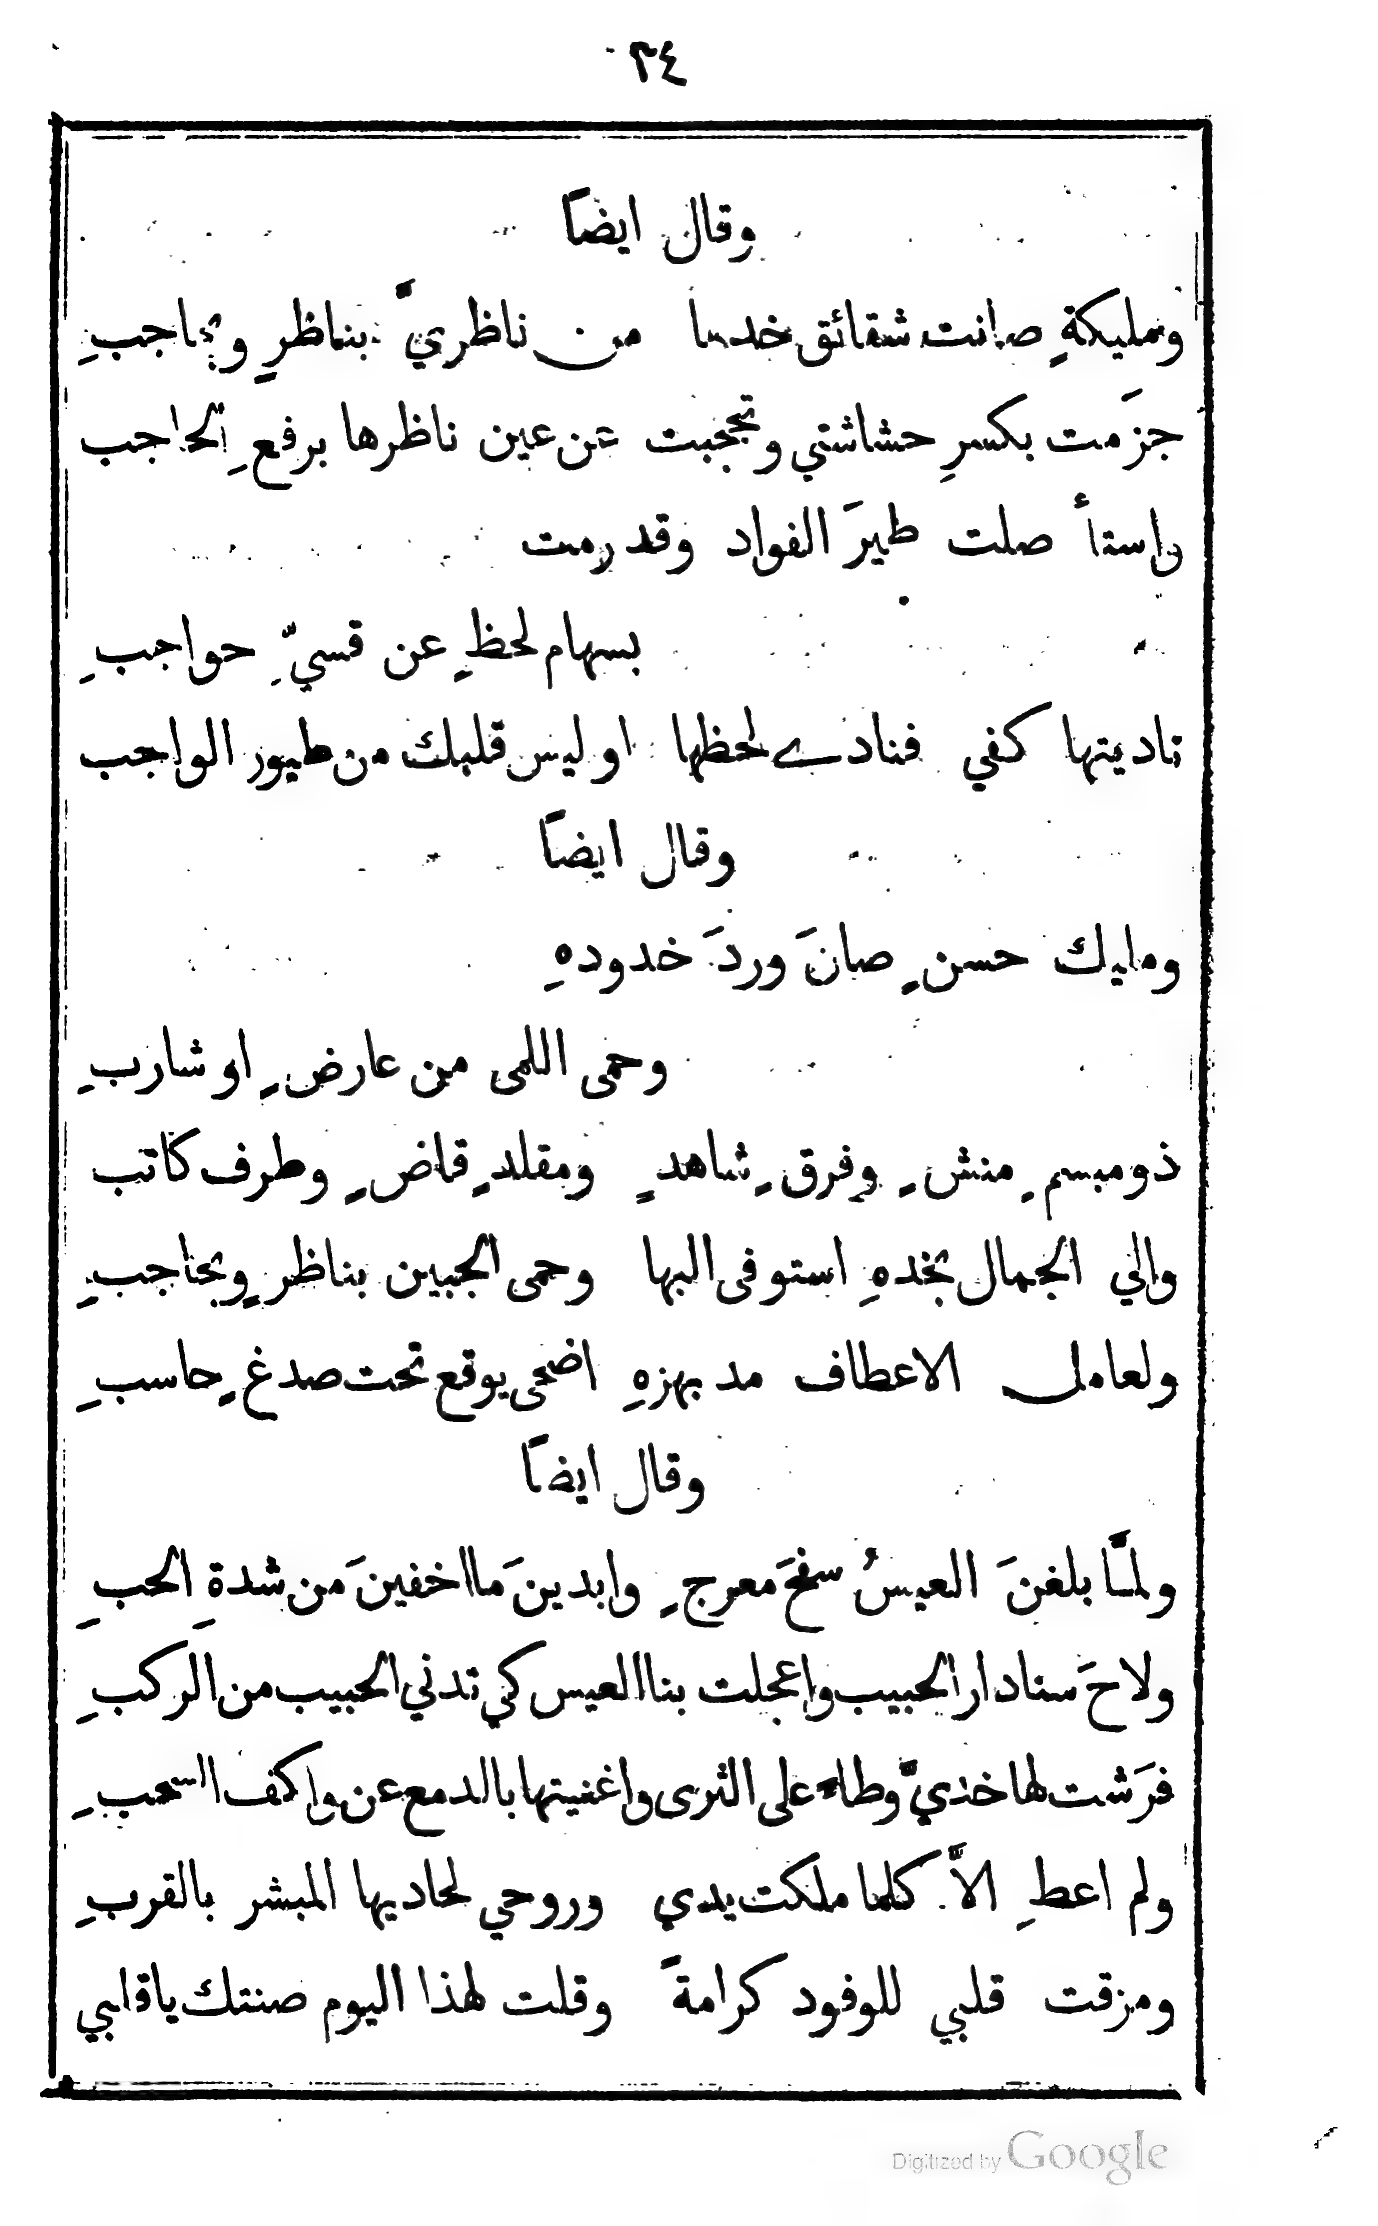 ٣٤
وقال ايضاً
ومليكةٍ صانت شقائق خدها من ناظريَّ بناظرٍ وبحاجبِ
جزَمت بكسرِ حشاشتي وتحجبت عن عين ناظرها برفعِ الحاجب
واستأصلت طيرَ الفواد وقد رمت
بسهام لحظٍ عن قسيِّ حواجبِ
ناديتها كفي فنادے لحظها اوليس قلبك من طيور الواجب
وقال ايضاً
ومليك حسنٍ صانَ وردَ خدودهِ
وحمى اللمى من عارضٍ او شاربِ
ذو مبسمٍ منشٍ وفرقٍ شاهدٍ ومقلدٍ قاضٍ وطرف كاتب
والي الجمال بخدهِ استوفى البها وحمى الجبين بناظرٍ وبحاجبِ
ولعامل الاعطاف مد بهزهِ اضحى يوقع تحت صدغٍ حاسبِ
وقال ايضاً
ولمَّا بلغنَ العيسُ سفحَ معرجٍ وابدينَ ما اخفينَ من شدةِ الحبِ
ولاحَ سنا دار الحبيب واعجلت بنا العيس كي تدني الحبيب من الركبِ
فرَشت لها خديَّ وطاءً على الثرى واغنيتها بالدمع عن واكف السحبِ
ولم اعطِ الاَّ كلما ملكت يدي وروحي لحاديها المبشر بالقربِ
ومزقت قلبي للوفود كرامةً وقلت لهذا اليوم صنتك ياقلبي
Digitized by Google